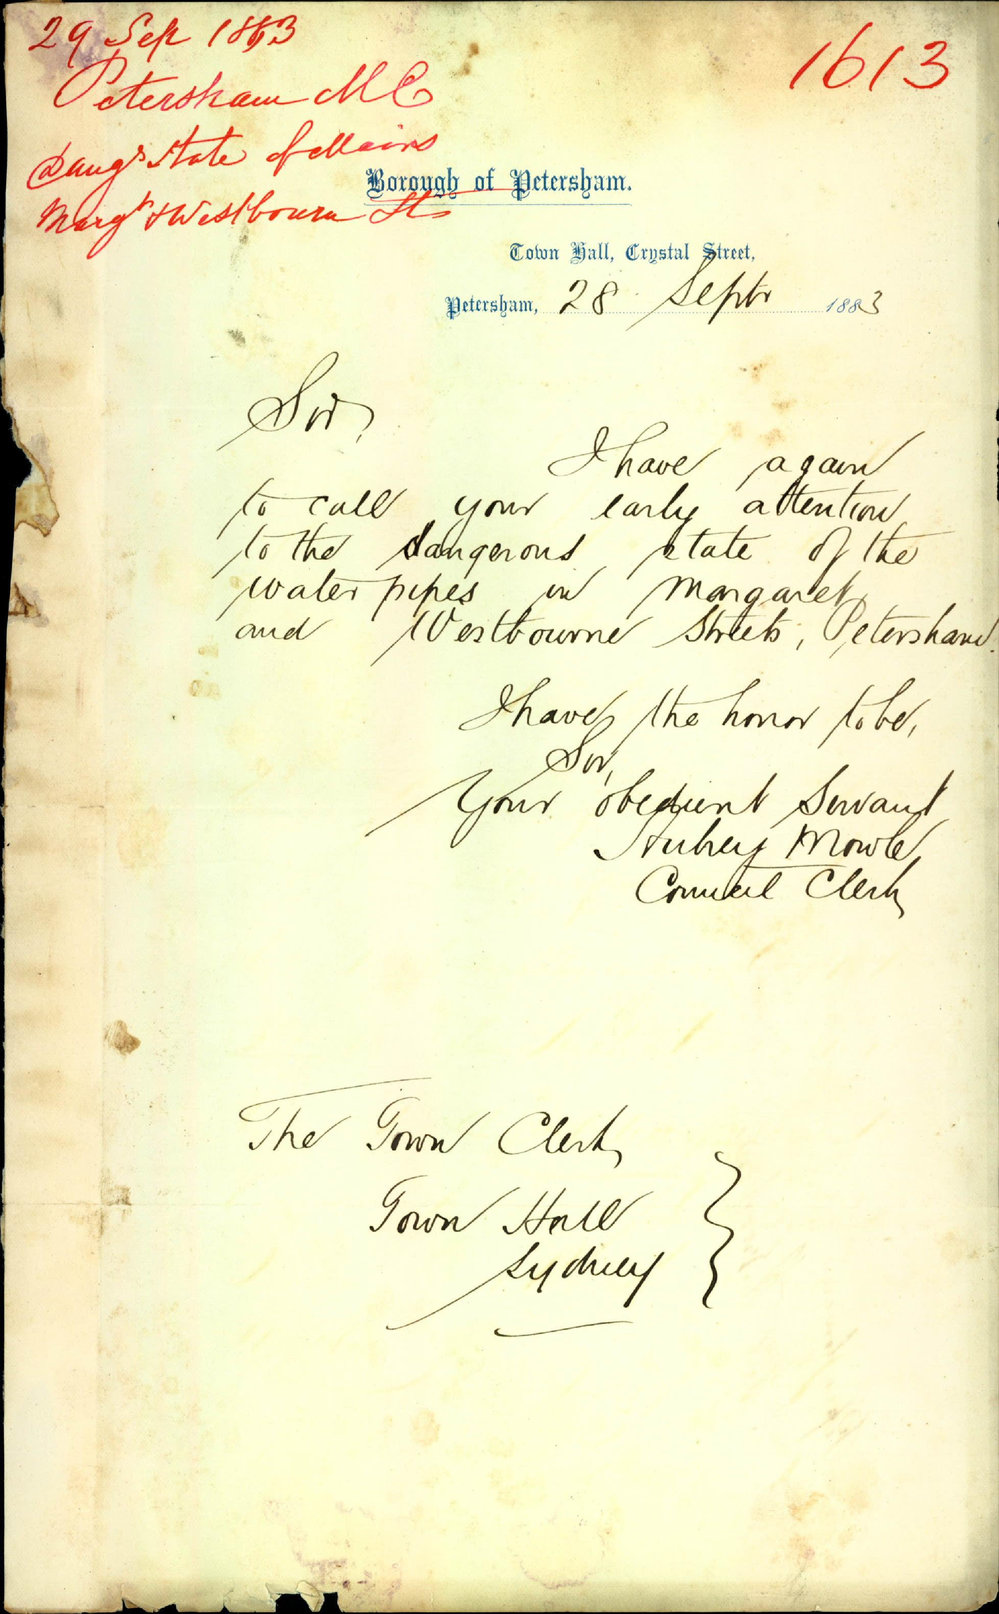 29 Sep 1883
1613
Petersham M C
Dangs State of Mains
Margt & Westbourn St
Borough of Petersham.
Town Hall, Crystal Street,
Petersham, 28 Septr 1883
Sir,
I have again
to call your early attention
to the dangerous state of the
water pipes in Margaret
and Westbourne Streets, Petersham.
I have the honor to be,
Sir,
Your obedient Servant
Aubrey Mowle,
Council Clerk
The Town Clerk,
Town Hall
Sydney